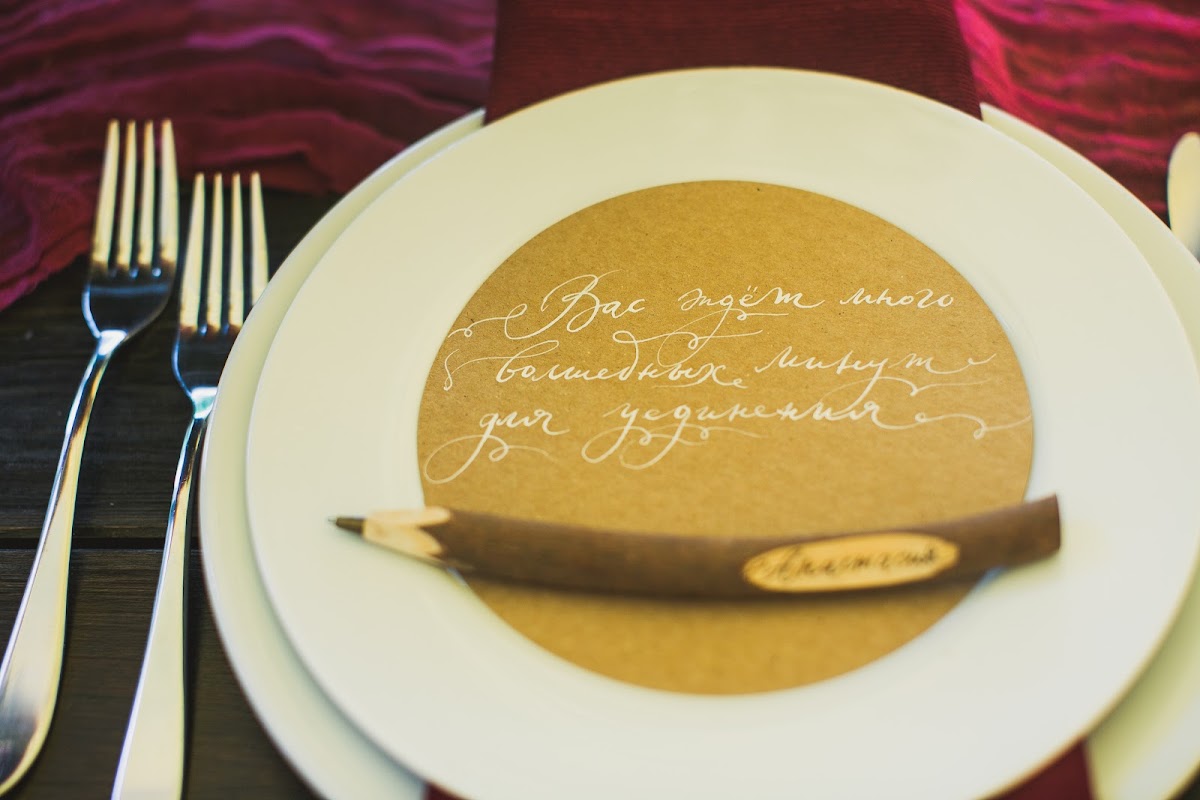 Вас ждёт много
волшебных минут
для уединения
Анастасия